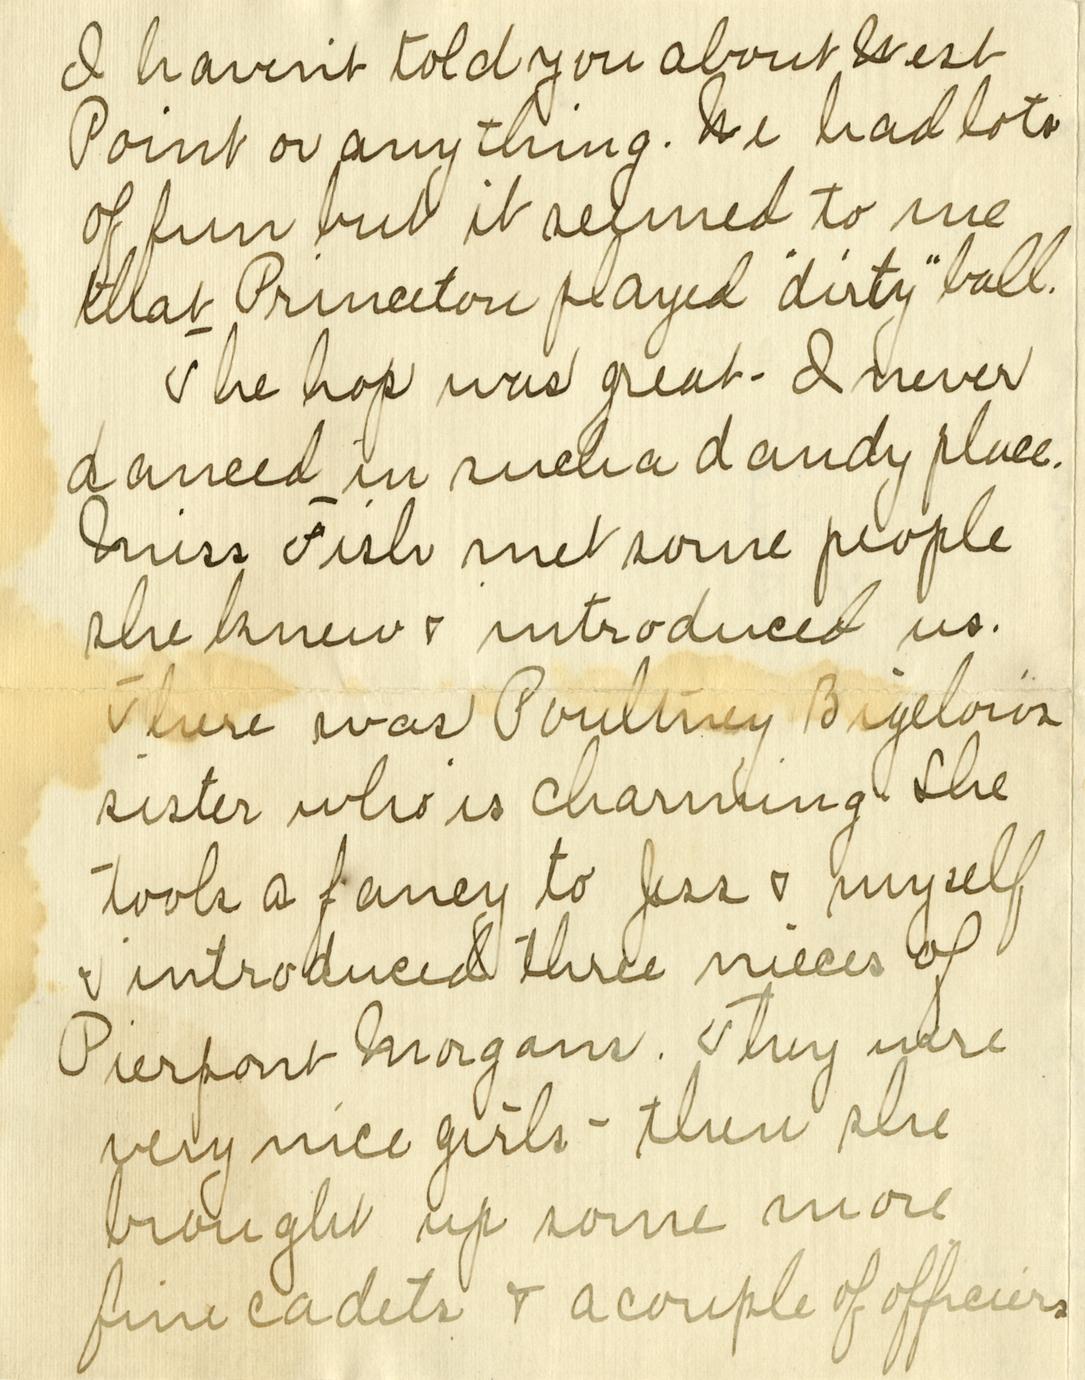 I haven't told you about West
Point or anything. We had lots
of fun but it seemed to me
that Princeton played "dirty" ball.
The hop was great - I never
danced in such a dandy place.
Miss Fish met some people
she knew & introduced us.
There was Poultney Bigelow's
sister who is charming. She
took a fancy to Jess & myself
& introduced three nieces of
Pierpont Morgans. They were
very nice girls - then she
brought up some more
fine cadets & a couple of officiers